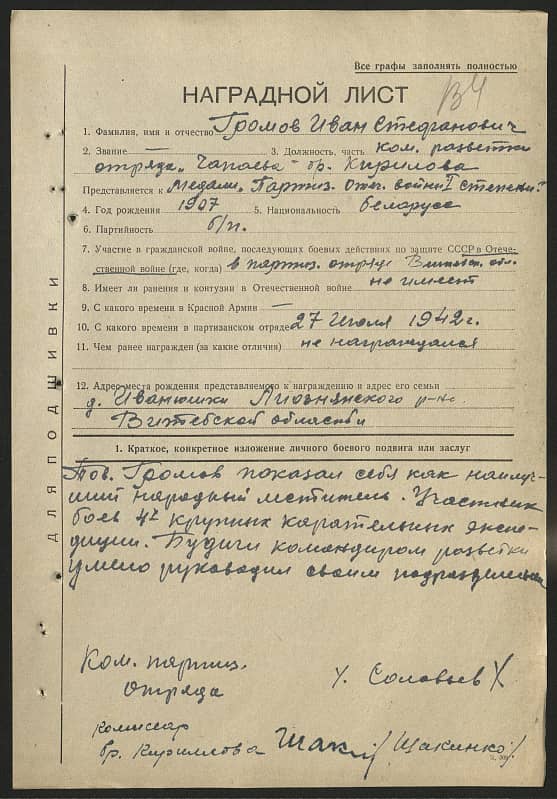 Все графы заполнять полностью
В4
НАГРАДНОЙ ЛИСТ
1. Фамилия, имя и отчество Громов Иван Стефанович
2. Звание — 3. Должность, часть ком. разветки
отряда „Чапаева" бр. Кирилова
Представляется к Медали „Партиз. Отеч. войны I степени"
4. Год рождения 1907 5. Национальность белорусс
6. Партийность б/п.
7. Участие в гражданской войне, последующих боевых действиях по защите СССР в Отече-
ственной войне (где, когда) в партиз. отряде Витебск. обл.
8. Имеет ли ранения и контузии в Отечественной войне не имеет
9. С какого времени в Красной Армии —
10. С какого времени в партизанском отряде 27 Июля 1942 г.
11. Чем ранее награжден (за какие отличия) не награждался
12. Адрес места рождения представляемого к награждению и адрес его семьи
д. Иванюшки Лиознянского р-на
Витебской области
ДЛЯ ПОДШИВКИ
1. Краткое, конкретное изложение личного боевого подвига или заслуг
Тов. Громов показал себя как наилуч-
ший народный мститель. Участник
боев 4х крупных карательных экспе-
диции. Будучи командиром разветки
умело руководил своим подразделением
Ком. партиз.
отряда
Соловьев
комиссар
бр. Кириллова Шак /Шакинко/